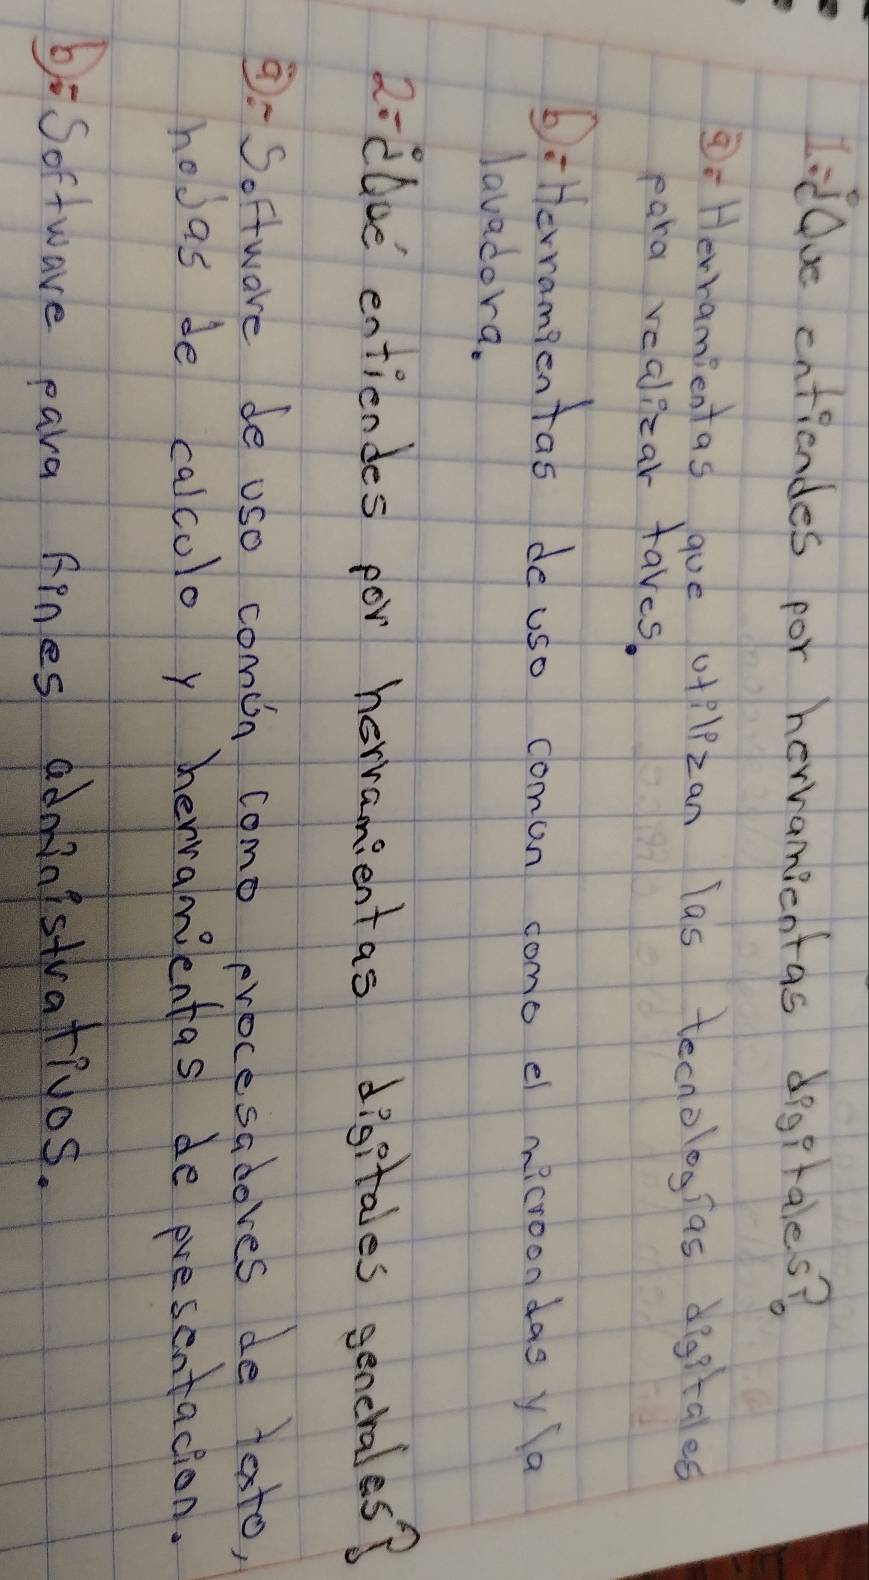 1:-¿Que entiendes por herramientas digitales?
a):- Herramientas que utilizan las tecnologías digitales
para realizar tares.
b):- Herramientas de uso comun como el microondas y la
lavadora.
2:-¿Qué entiendes por herramientas digitales generales?
a):- Software de uso común como procesadores de texto,
hojas de calculo y herramientas de presentacion.
b):- Software para fines administrativos.